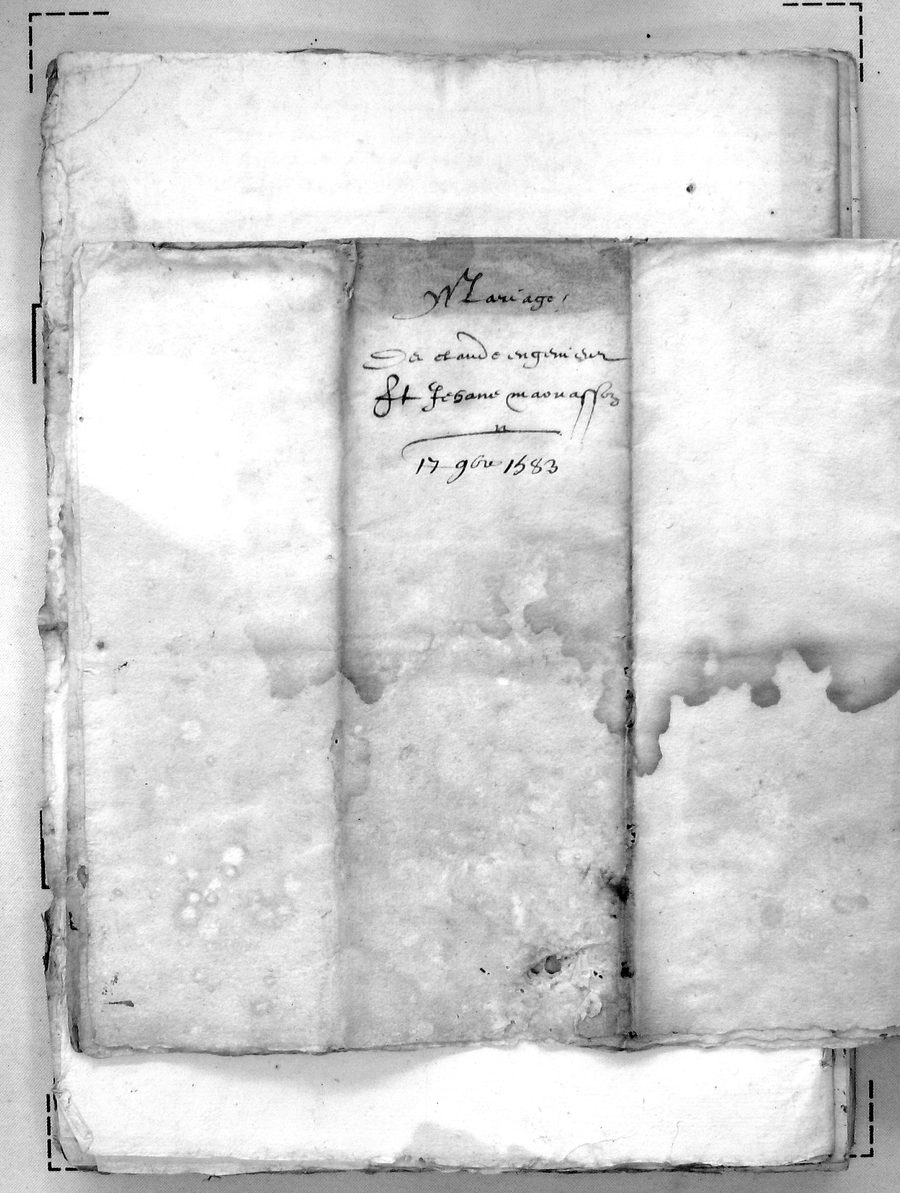 Mariage
De claude ingenieur
Et Jehane maouasson
17 9bre 1583